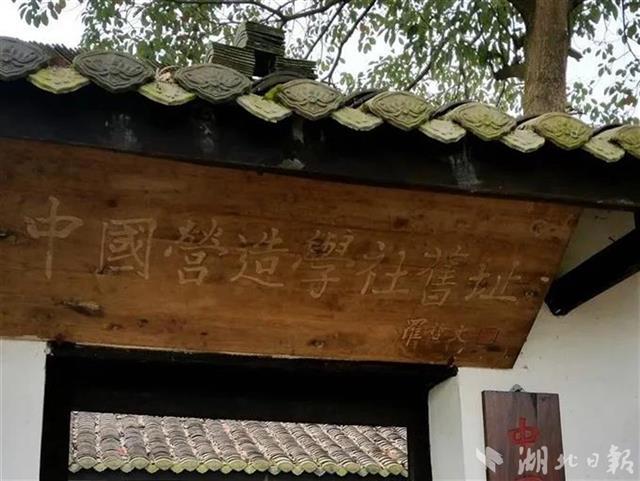 中國營造學社舊址
羅哲文
中
湖北日報